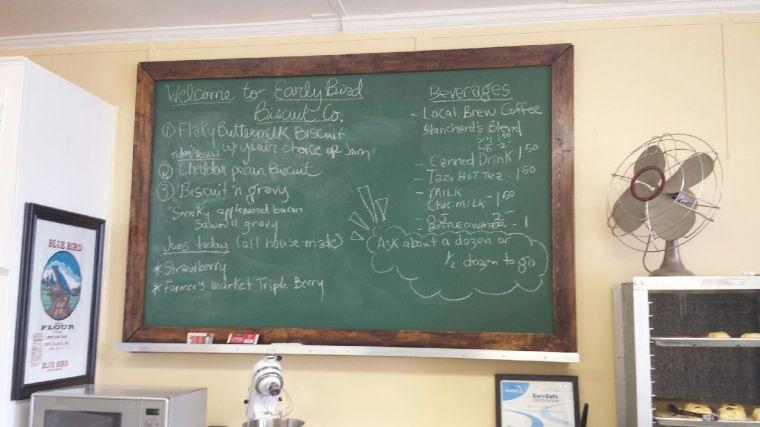 Welcome to Early Bird
Biscuit Co.
1) Flaky Buttermilk Biscuit
w/ your choice of Jam
2) Cheddar pecan Biscuit
3) Biscuit 'n gravy
"Smoky applewood bacon
gravy
Jams today (all house-made)
* Strawberry
* Farmer's Market Triple Berry
Beverages
- Local Brew Coffee
Blanchard's Blend
- Canned Drink 1.50
- Tazo Hot Tea - 1.50
- Milk
Choc. milk - 1.50
- OJ 2-
- Bottled Water - 1
Ask about a dozen or
1/2 dozen to go
BLUE BIRD
FLOUR
BLUE BIRD
ServSafe
CERTIFICATION